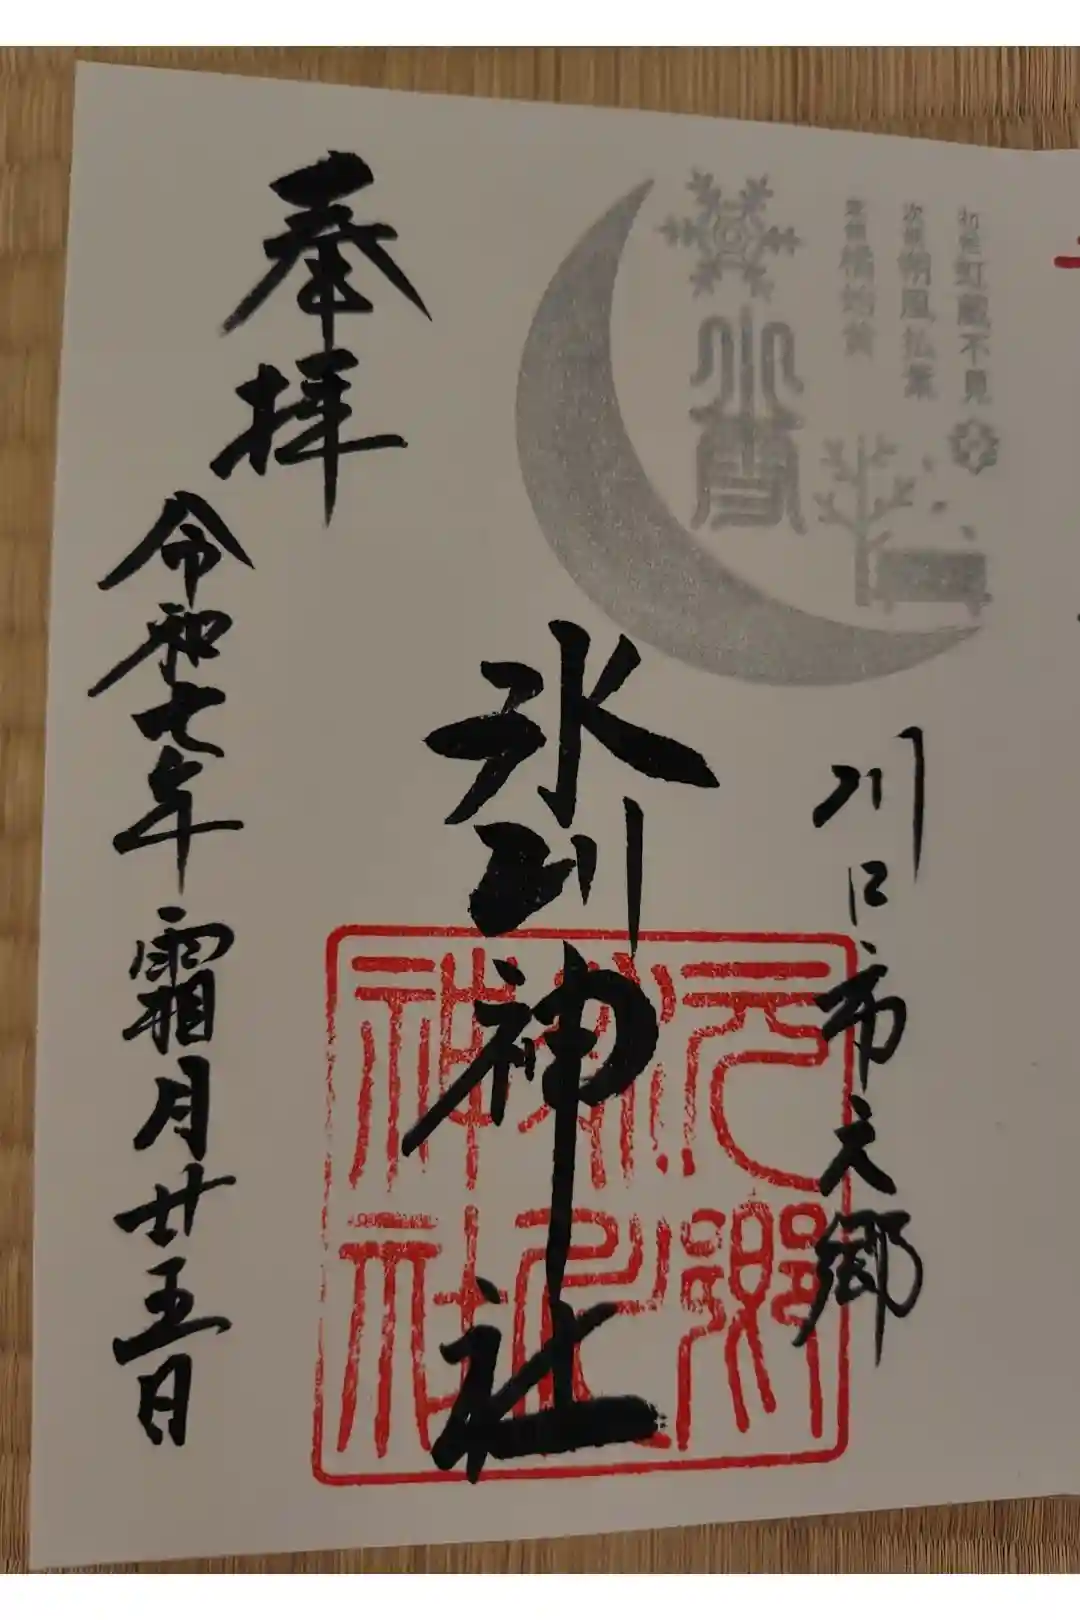 初候虹蔵不見
次候朔風払葉
末候橘始黄
小雪
川口市元郷
氷川神社
元郷
氷川
神社
奉拝
令和七年霜月廿五日